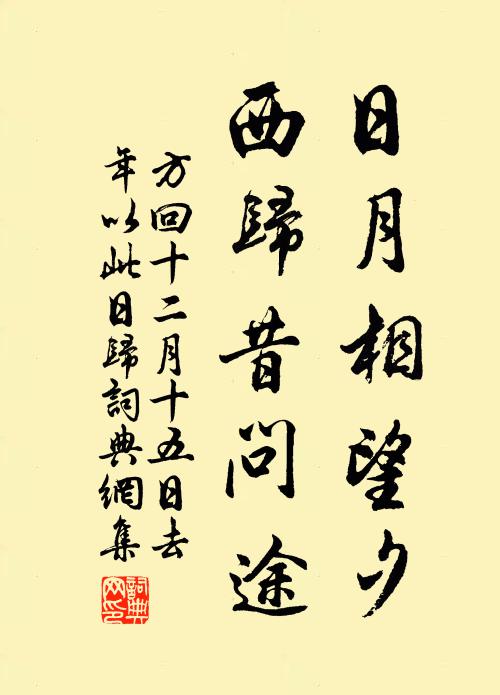 日月相望夕
西歸昔問途
方回十二月十五日去
年以此日歸詞典網集
詞典
网印